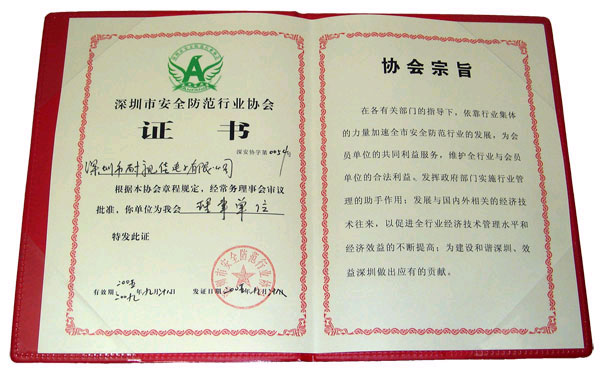 深圳市安全防范行业协会
证 书
深安协字第0054号
深圳市耐视佳电子有限公司
根据本协会章程规定，经常务理事会审议
批准，你单位为我会 理事单位
特发此证
有效期
发证日期
深圳市安全防范行业协会
协会宗旨
在各有关部门的指导下，依靠行业集体
的力量加速全市安全防范行业的发展，为会
员单位的共同利益服务，维护全行业与会员
单位的合法利益。发挥政府部门实施行业管
理的助手作用；发展与国内外相关的经济技
术往来，以促进全行业经济技术管理水平和
经济效益的不断提高；为建设和谐深圳、效
益深圳做出应有的贡献。